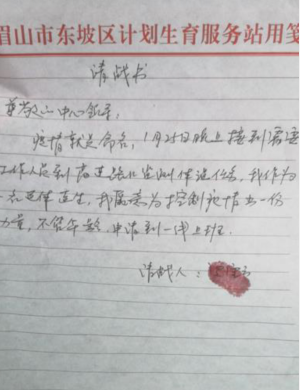 眉山市东坡区计划生育服务站用笺
请战书
尊敬的中心领导：
疫情就是命令，1月25日晚上接到需要
工作人员到高速路口监测体温任务，我作为
一名医生，我愿意为控制疫情出一份
力量，不管年龄，申请到一线上班．
请战人：